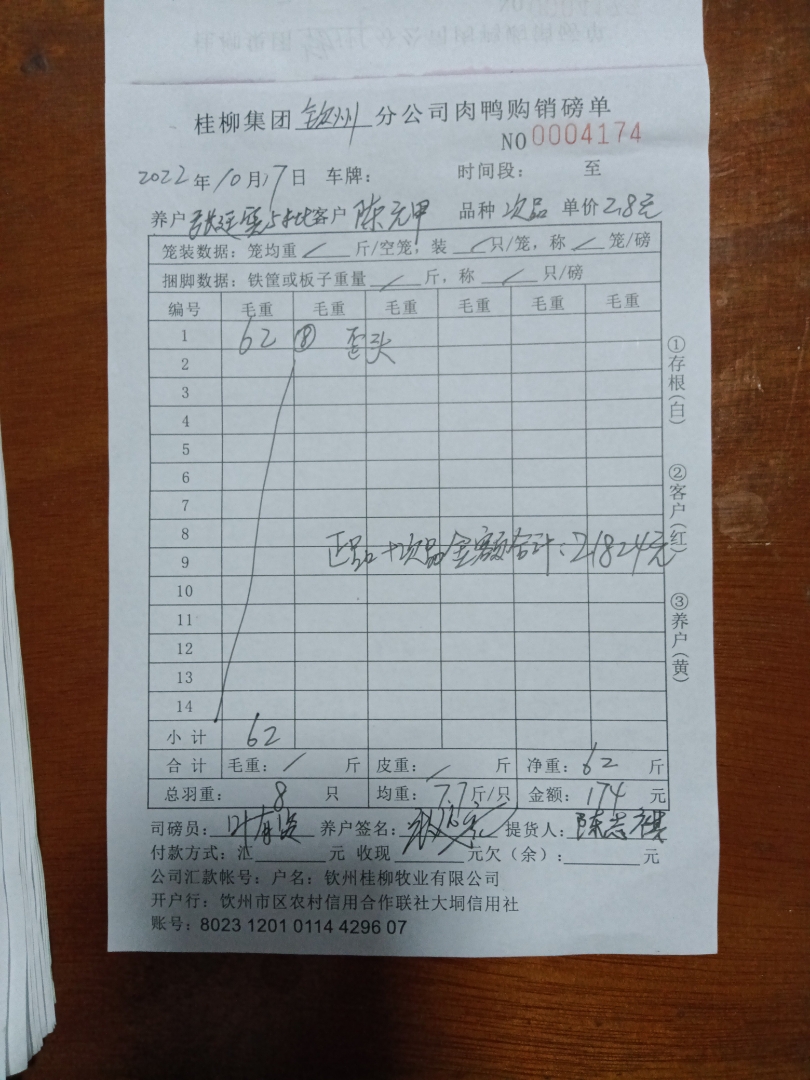 桂柳集团 钦州 分公司肉鸭购销磅单
NO 0004174
2022年10月17日 车牌: 时间段: 至
养户 张廷 客户 陈元甲 品种 次品 单价 2.8元
笼装数据:笼均重 / 斤/空笼,装 / 只/笼,称 / 笼/磅
捆脚数据:铁筐或板子重量 / 斤,称 / 只/磅
编号 毛重 毛重 毛重 毛重 毛重 毛重
1 62 ⑧ 歪头
2
3
4
5
6
7
8
正品+次品金额合计:21824元
9
10
11
12
13
14
小计 62
合计 毛重: / 斤 皮重: / 斤 净重: 62 斤
总羽重: 8 只 均重: 7.7斤/只 金额: 174 元
司磅员: 养户签名: 提货人: 陈志
付款方式:汇 元 收现 元欠(余): 元
公司汇款帐号:户名:钦州桂柳牧业有限公司
开户行:钦州市区农村信用合作联社大垌信用社
账号:8023 1201 0114 4296 07
①存根(白)
②客户(红)
③养户(黄)